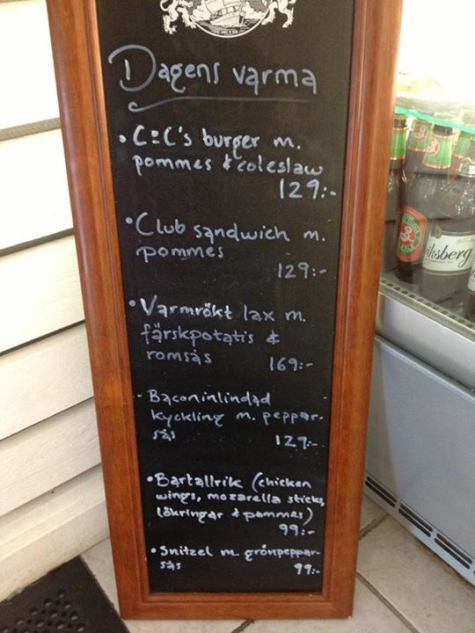 Dagens varma
• C:C's burger m.
pommes & coleslaw
129:-
• Club sandwich m.
pommes
129:-
• Varmrökt lax m.
färskpotatis &
romsås 169:-
- Baconinlindad
kyckling m. peppar-
sås 129:-
• Bartallrik (chicken
wings, mozarella sticks,
lökringar & pommes)
99:-
• Snitzel m. grönpeppar-
sås 99:-
iksberg